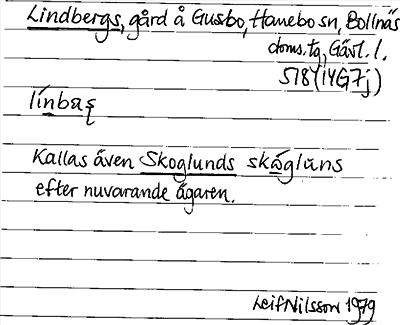 Lindbergs, gård å Gusbo, Hanebo sn, Bollnäs
doms.tg, Gävl. l.
518 (14G7j)
línbaʂ
Kallas även Skoglunds skóglùns
efter nuvarande ägaren.
Leif Nilsson 1979